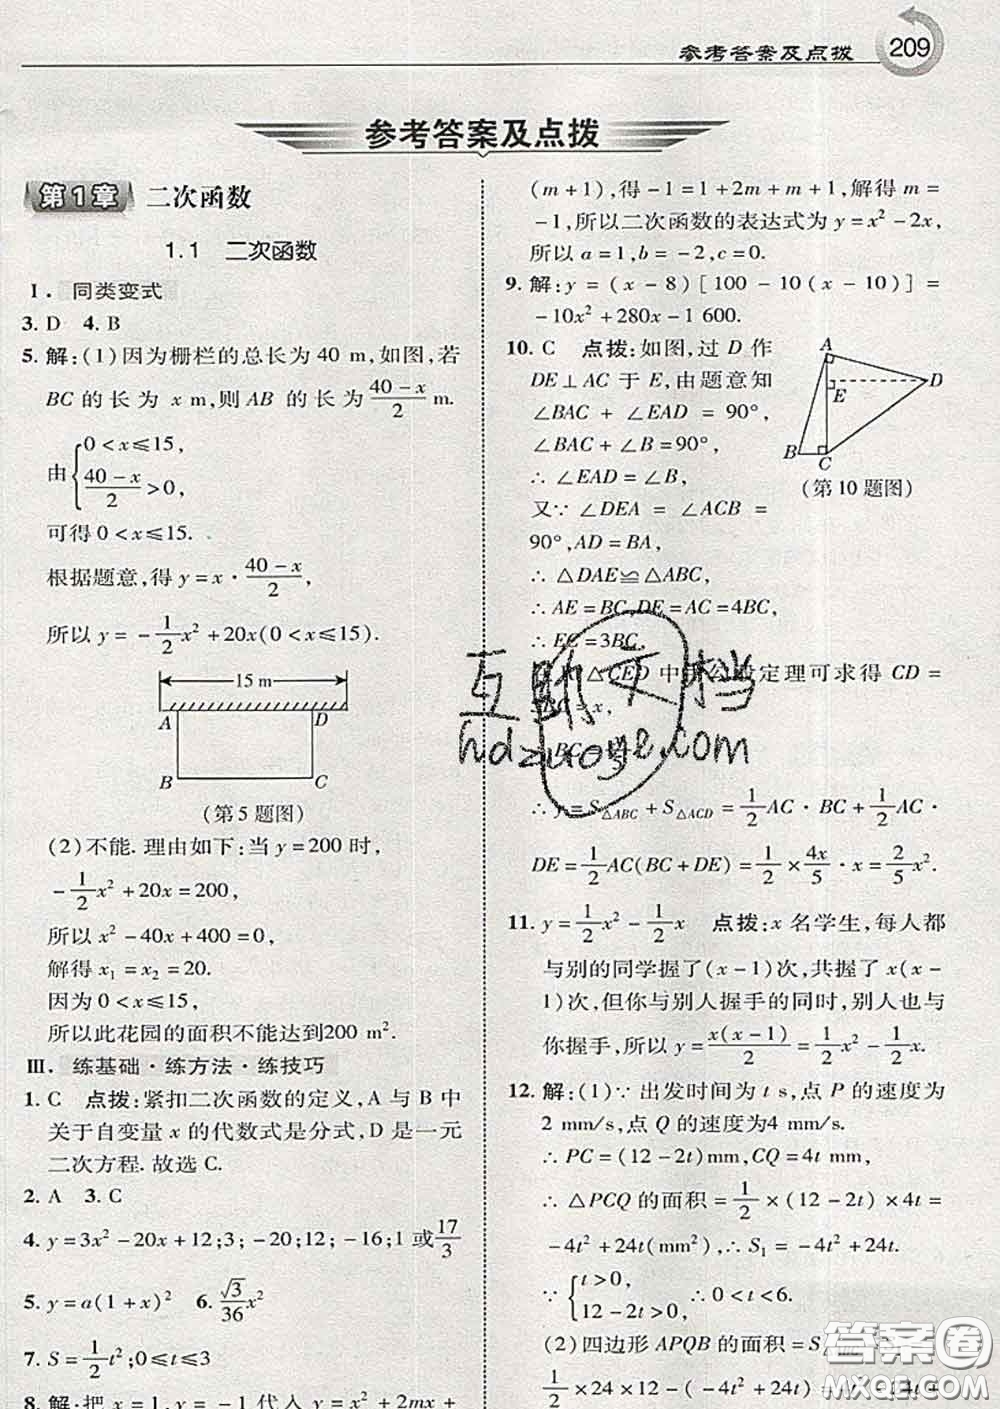 参考答案及点拨 209
参考答案及点拨
第1章 二次函数
1.1 二次函数
Ⅰ. 同类变式
3. D 4. B
5. 解:(1)因为栅栏的总长为 40 m,如图,若
BC 的长为 x m,则 AB 的长为 (40-x)/2 m.
由 {0<x≤15, (40-x)/2>0,
可得 0<x≤15.
根据题意,得 y=x·(40-x)/2,
所以 y=-1/2x²+20x(0<x≤15).
15 m
A D
B C
(第5题图)
(2)不能. 理由如下:当 y=200 时,
-1/2x²+20x=200,
所以 x²-40x+400=0,
解得 x₁=x₂=20.
因为 0<x≤15,
所以此花园的面积不能达到200 m².
Ⅲ. 练基础·练方法·练技巧
1. C 点拨:紧扣二次函数的定义,A 与 B 中
关于自变量 x 的代数式是分式,D 是一元
二次方程. 故选 C.
2. A 3. C
4. y=3x²-20x+12;3;-20;12;-16;1 或 17/3
5. y=a(1+x)² 6. √3/36x²
7. S=1/2t²;0≤t≤3
8. 解:把 x=1,y=-1 代入 y=x²+2mx+
(m+1),得 -1=1+2m+m+1,解得 m=
-1,所以二次函数的表达式为 y=x²-2x,
所以 a=1,b=-2,c=0.
9. 解:y=(x-8)[100-10(x-10)]=
-10x²+280x-1 600.
10. C 点拨:如图,过 D 作
DE⊥AC 于 E,由题意知
∠BAC+∠EAD=90°,
∠BAC+∠B=90°,
∴∠EAD=∠B.
又∵∠DEA=∠ACB=
90°,AD=BA,
∴△DAE≌△ABC,
∴AE=BC,DE=AC=4BC,
∴EC=3BC.
A
E D
B C
(第10题图)
△CED 中由勾股定理可求得 CD=
=x,
BC=
∴y=S△ABC+S△ACD=1/2AC·BC+1/2AC·
DE=1/2AC(BC+DE)=1/2×4x/5·x=2/5x².
11. y=1/2x²-1/2x 点拨:x 名学生,每人都
与别的同学握了(x-1)次,共握了 x(x-
1)次,但你与别人握手的同时,别人也与
你握手,所以 y=x(x-1)/2=1/2x²-1/2x.
12. 解:(1)∵出发时间为 t s,点 P 的速度为
2 mm/s,点 Q 的速度为4 mm/s.
∴PC=(12-2t)mm,CQ=4t mm,
∴△PCQ 的面积=1/2×(12-2t)×4t=
-4t²+24t(mm²),∴S₁=-4t²+24t.
∵{t>0, 12-2t>0, ∴0<t<6.
(2)四边形 APQB 的面积=S
1/2×24×12-(-4t²+24t)
互助文档
hdzuoye.com
答案圈
MXQE.COM